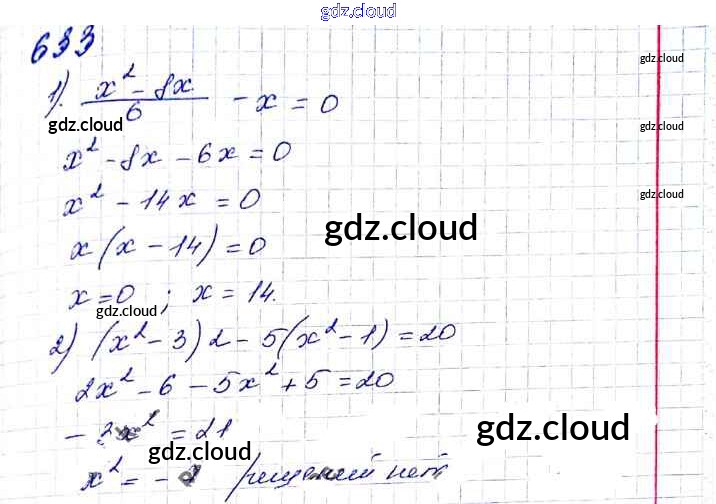 gdz.cloud
633
1). (x² - 8x)/6 - x = 0
gdz.cloud
gdz.cloud
x² - 8x - 6x = 0
gdz.cloud
x² - 14x = 0
gdz.cloud
gdz.cloud
x(x - 14) = 0
x = 0 ; x = 14.
gdz.cloud
2) (x² - 3)2 - 5(x² - 1) = 20
2x² - 6 - 5x² + 5 = 20
- 3x² = 21
gdz.cloud
gdz.cloud
x² = - решений нет